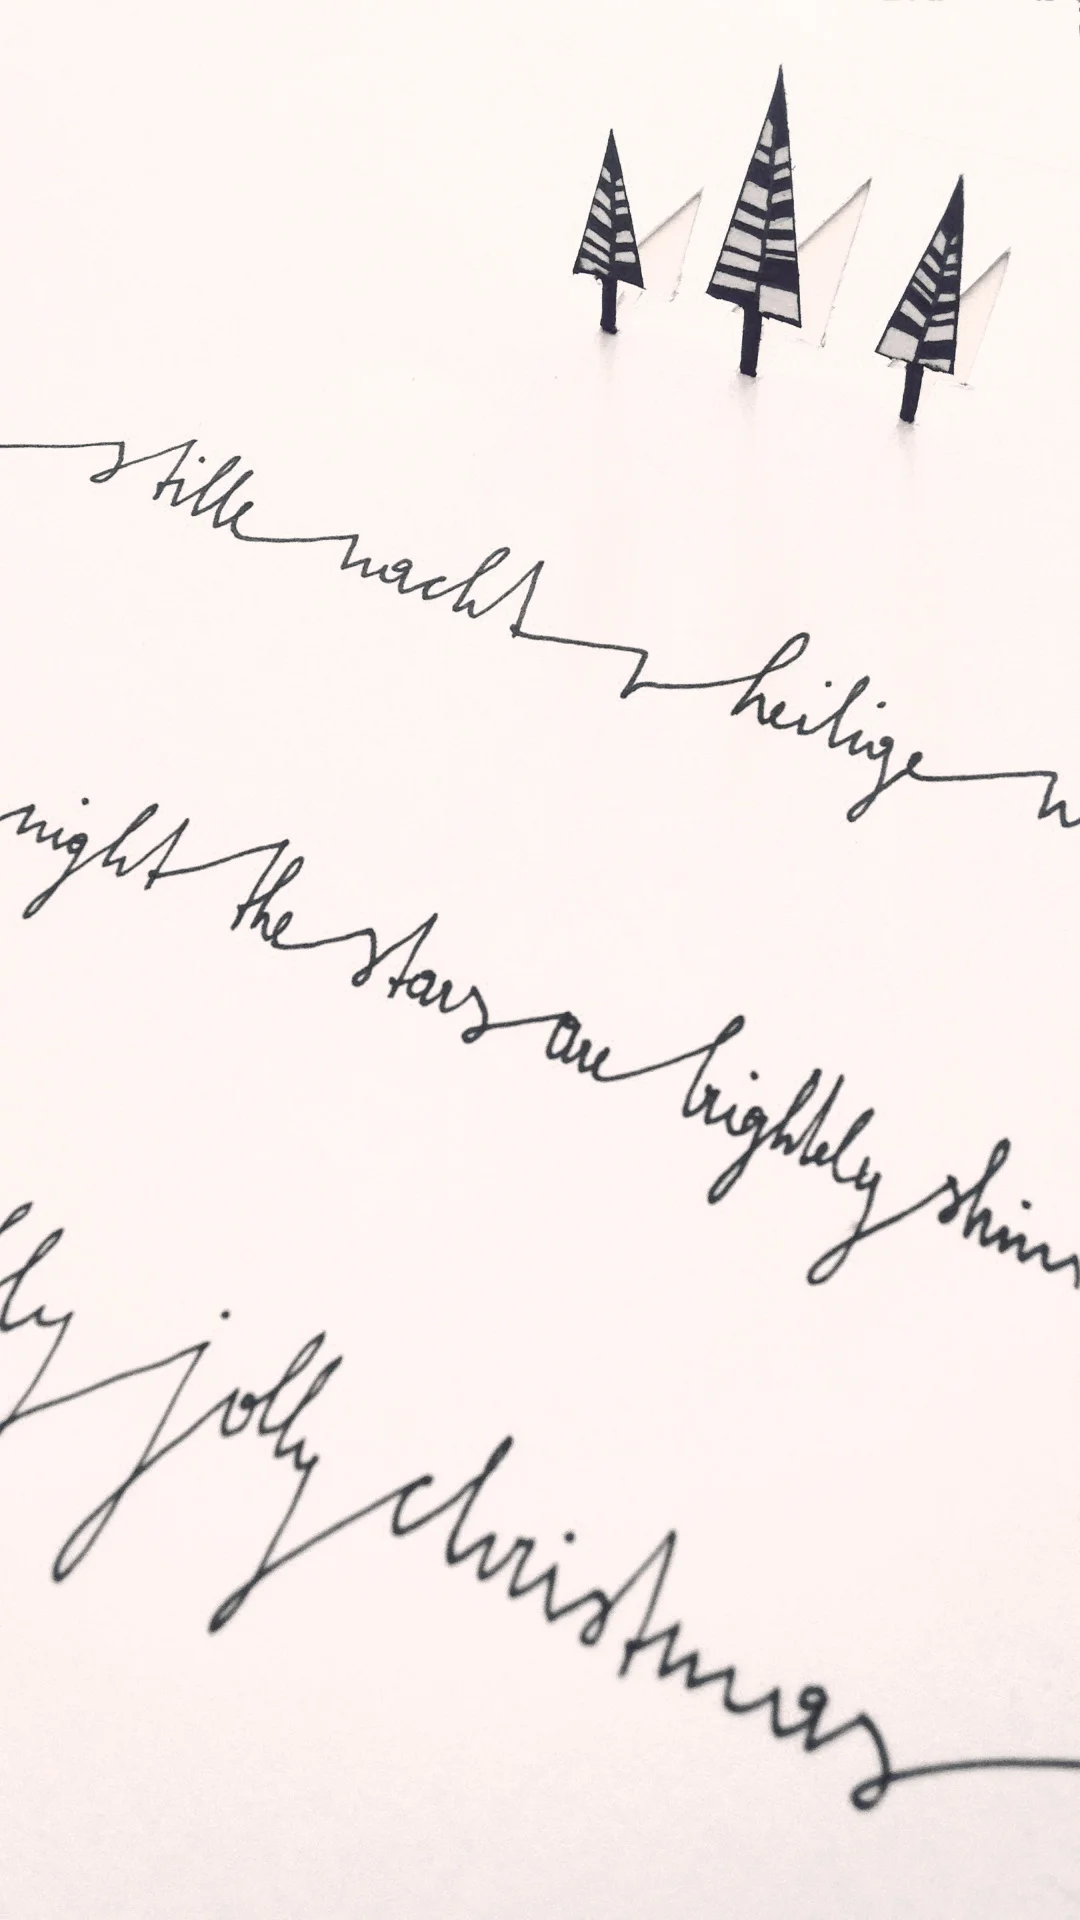 stille nacht heilige n
night the stars are brightely shin
lly jolly christmas